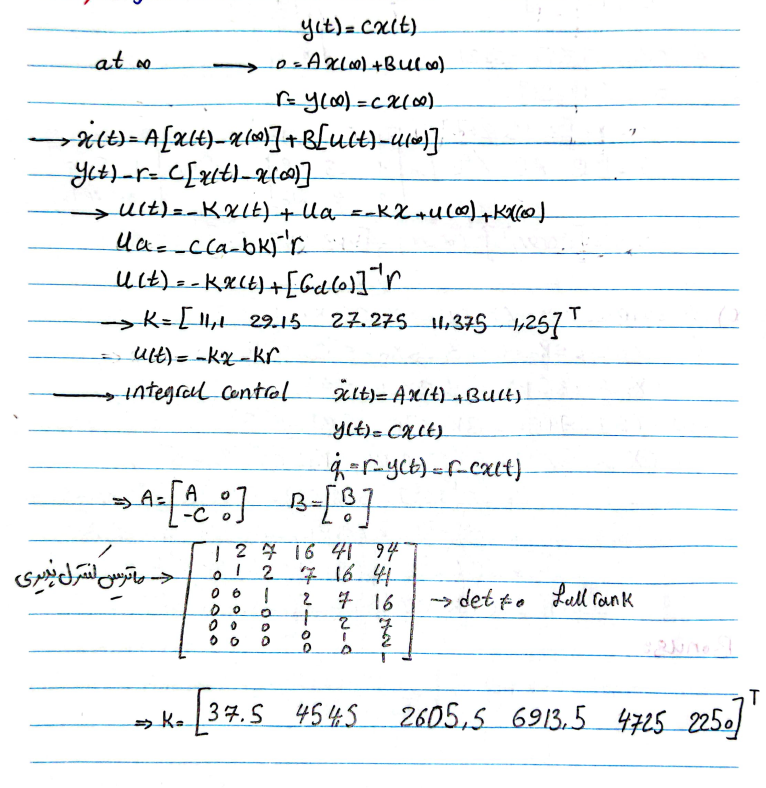 y(t) = cx(t)
at ∞ → 0 = Ax(∞) + Bu(∞)
r = y(∞) = cx(∞)
→ ẋ(t) = A[x(t) - x(∞)] + B[u(t) - u(∞)]
y(t) - r = C[x(t) - x(∞)]
→ u(t) = -Kx(t) + ua = -Kx + u(∞) + Kx(∞)
ua = -c(a-bK)⁻¹r
u(t) = -Kx(t) + [Gd(0)]⁻¹ r
→ K = [11,1 29.15 27.275 11,375 1,25]ᵀ
u(t) = -Kx - Kr
→ integral control ẋ(t) = Ax(t) + Bu(t)
y(t) = Cx(t)
q̇ = r - y(t) = r - cx(t)
⇒ A = [A 0 -C 0] B = [B 0]
1 2 7 16 41 94
ماتریس کنترل پذیری → 0 1 2 7 16 41
0 0 1 2 7 16 → det ≠ 0 full rank
0 0 0 1 2 7
0 0 0 0 1 2
0 0 0 0 0 1
⇒ K = [37.5 454,5 2605,5 6913,5 4725 2250]ᵀ